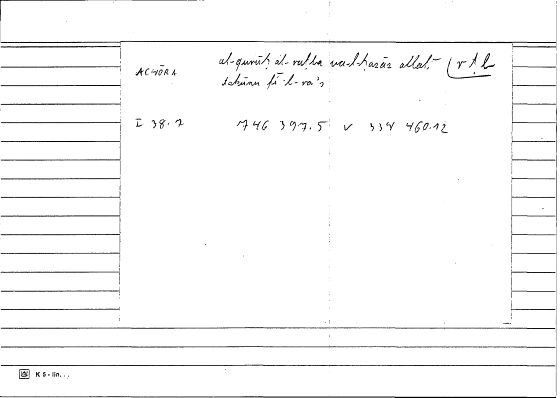 ACHŌRA al-qurūḥ al-raṭba wa-l-ḥazāz allatī (rṭb
takūnu fī l-ra's
I 38.7 746 397.5 v 334 460.12
K 5 - lin.